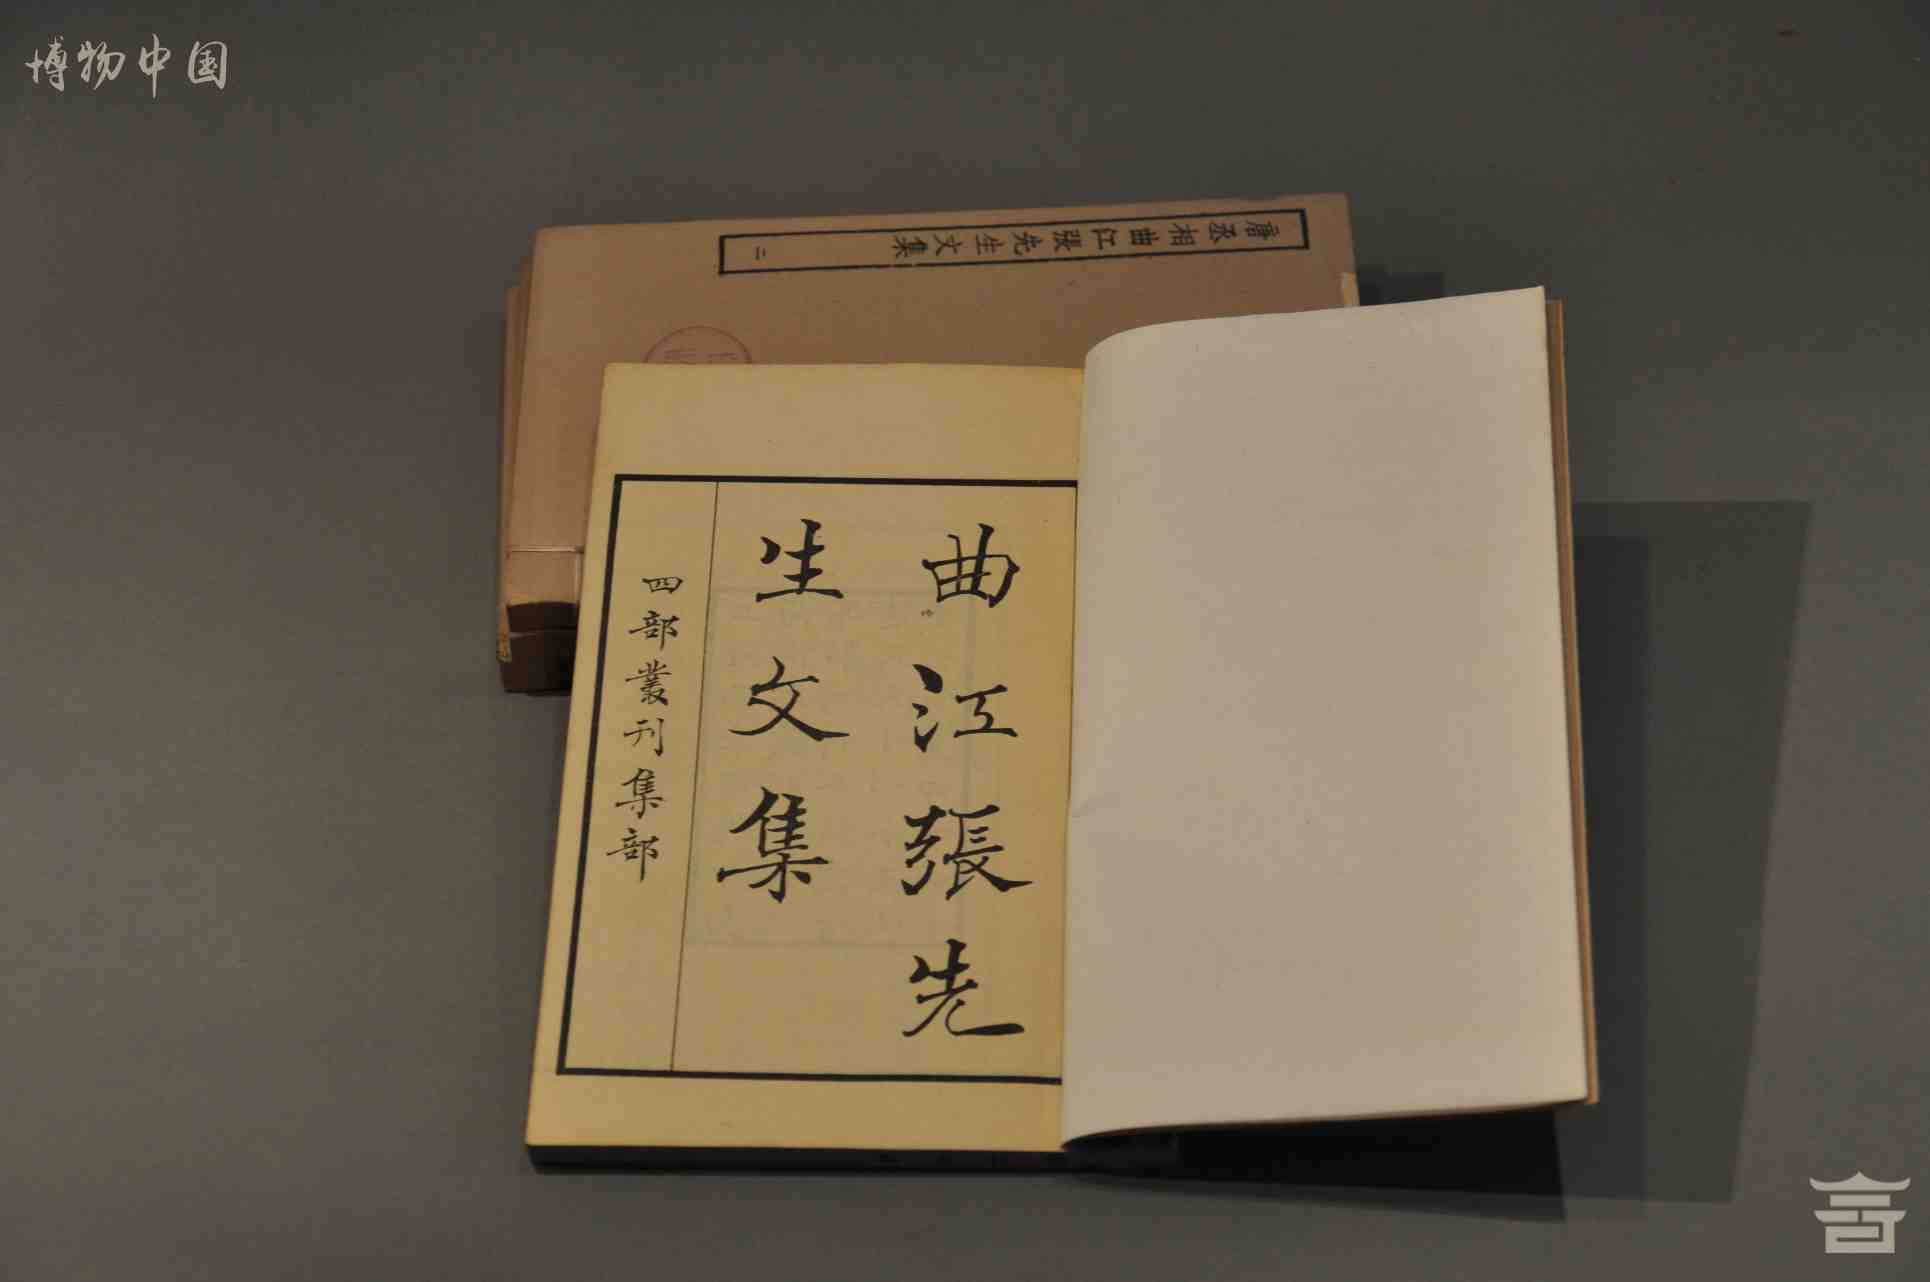 博物中国
唐丞相曲江張先生文集 二
曲江張先
生文集
四部叢刊集部